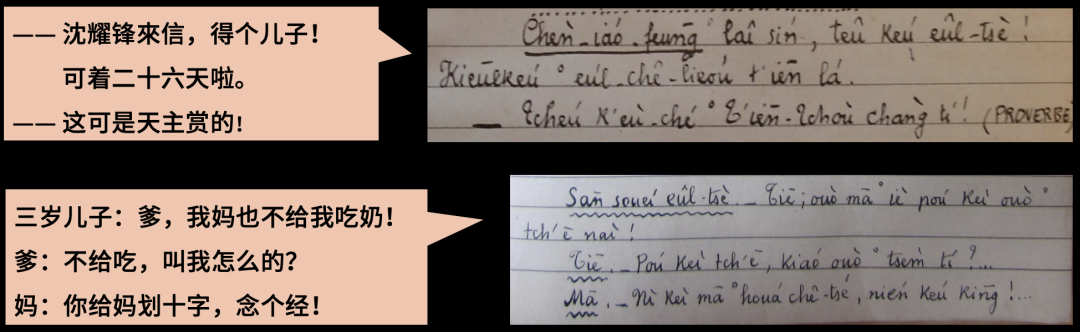 —— 沈耀锋來信，得个儿子！
可着二十六天啦。
—— 这可是天主赏的!
Chen̄-iáo-feung̀ ° laî sín, teû keú eûl-tsè !
Kieuēkeú ° eúl-chê-lieoú t'iēn lá.
— Tcheú k'eù-ché ° T'iēn-Tchoù chàng tí ! (PROVERBE)
三岁儿子：爹，我妈也不给我吃奶！
爹：不给吃，叫我怎么的？
妈：你给妈划十字，念个经！
San̄ soueí eûl-tsè _ Tiē ; ouò mā ° iè poú keì ouò °
tch'ē naì !
Tiē. _ Poú keì tch'ē, kiaó ouò ° tsèm tí ?...
Mā. _ Nì keì mā ° houá chê-tsé, nień keú kinḡ !...